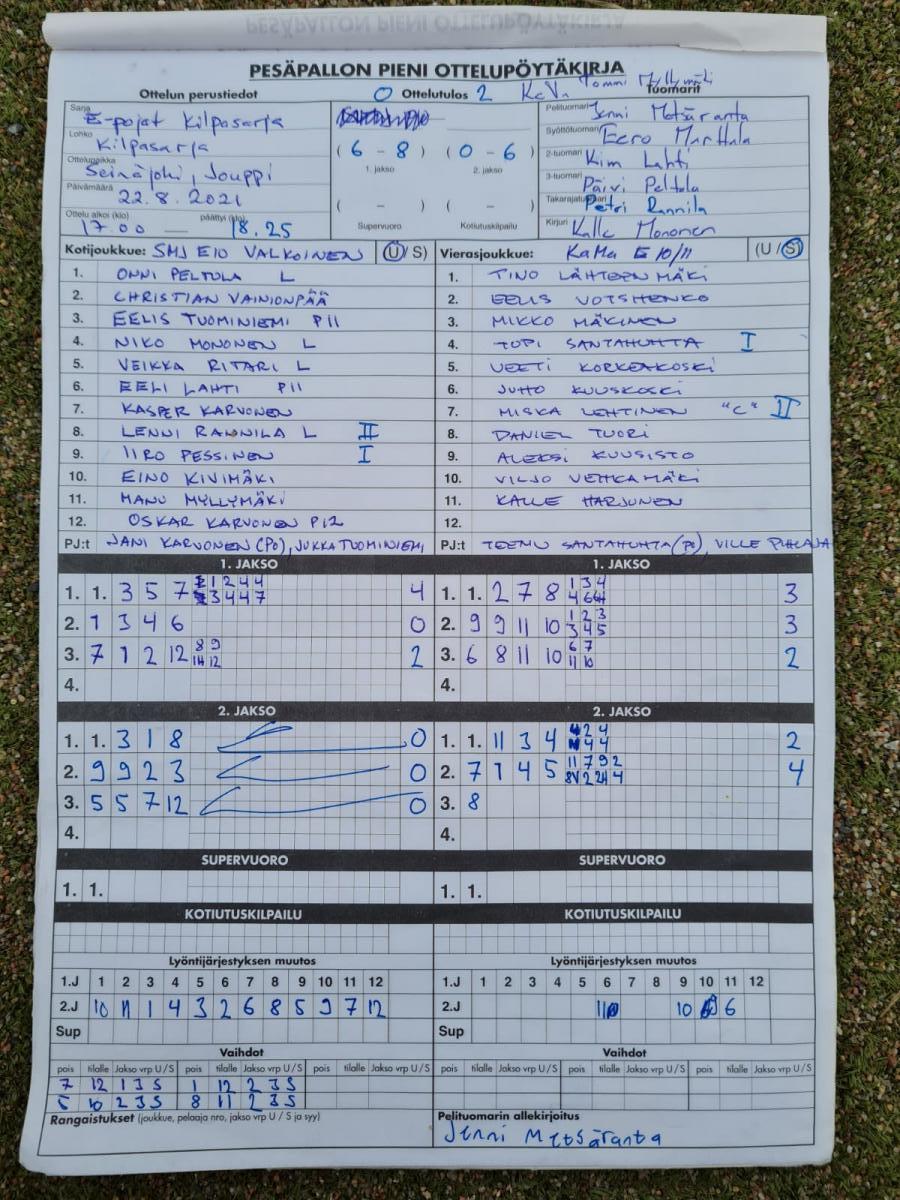 PESÄPALLON PIENI OTTELUPÖYTÄKIRJA
Ottelun perustiedot
0 Ottelutulos 2 KaMa
Tommi Myllymäki
Tuomarit
Sarja E-pojat Kilpasarja
Lohko Kilpasarja
Ottelupaikka Seinäjoki, Jouppi
Päivämäärä 22.8.2021
Ottelu alkoi (klo) 17.00 päättyi (klo) 18.25
( 6 - 8 ) ( 0 - 6 )
1. jakso 2. jakso
( - ) ( - )
Supervuoro Kotiutuskilpailu
Pelituomari Jenni Metsäranta
Syöttötuomari Eero Marttala
2-tuomari Kim Lahti
3-tuomari Päivi Peltola
Takarajatuomari Petri Rannila
Kirjuri Kalle Mononen
Kotijoukkue: SMJ E10 VALKOINEN (U / S)
1. ONNI PELTOLA L
2. CHRISTIAN VAINIONPÄÄ
3. EELIS TUOMINIEMI P11
4. NIKO MONONEN L
5. VEIKKA RITARI L
6. EELI LAHTI P11
7. KASPER KARVONEN
8. LENNI RANNILA L II
9. IIRO PESSINEN I
10. EINO KIVIMÄKI
11. MANU MYLLYMÄKI
12. OSKAR KARVONEN P12
PJ:t JANI KARVONEN (PO), JUKKA TUOMINIEMI
Vierasjoukkue: KaMa E 10/11 (U / S)
1. TINO LÄHTEENMÄKI
2. EELIS VOTSHENKO
3. MIKKO MÄKINEN
4. TOPI SANTAHUHTA I
5. VEETI KORKEAKOSKI
6. JUHO KUUSKOSKI
7. MISKA LEHTINEN "C" II
8. DANIEL TUORI
9. ALEKSI KUUSISTO
10. VILJO VEHKAMÄKI
11. KALLE HARJUNEN
12.
PJ:t TEEMU SANTAHUHTA (PJ), VILLE PIHLAJA
1. JAKSO
1. 1. 3 5 7 1 2 4 4 4
3 4 4 7
2. 1 3 4 6 0
3. 7 1 2 12 8 9 2
11 12
4.
1. JAKSO
1. 1. 2 7 8 1 3 4 3
4 6
2. 9 9 11 10 1 2 3 3
3 4 5
3. 6 8 11 10 6 7 2
11 10
4.
2. JAKSO
1. 1. 3 1 8 0
2. 9 9 2 3 0
3. 5 5 7 12 0
4.
2. JAKSO
1. 1. 11 3 4 2 4 2
4 4
2. 7 1 4 5 11 7 9 2 4
3. 8
4.
SUPERVUORO
1. 1.
SUPERVUORO
1. 1.
KOTIUTUSKILPAILU
KOTIUTUSKILPAILU
Lyöntijärjestyksen muutos
1.J 1 2 3 4 5 6 7 8 9 10 11 12
2.J 10 11 1 4 3 2 6 8 5 9 7 12
Sup
Lyöntijärjestyksen muutos
1.J 1 2 3 4 5 6 7 8 9 10 11 12
2.J 11 10 6
Sup
Vaihdot
pois tilalle Jakso vrp U / S pois tilalle Jakso vrp U / S pois tilalle Jakso vrp U / S
7 12 1 3 S 1 12 2 3 S
10 2 3 S 8 11 2 3 S
Vaihdot
pois tilalle Jakso vrp U / S pois tilalle Jakso vrp U / S pois tilalle Jakso vrp U / S
Rangaistukset (joukkue, pelaaja nro, jakso vrp U / S ja syy)
Pelituomarin allekirjoitus
Jenni Metsäranta